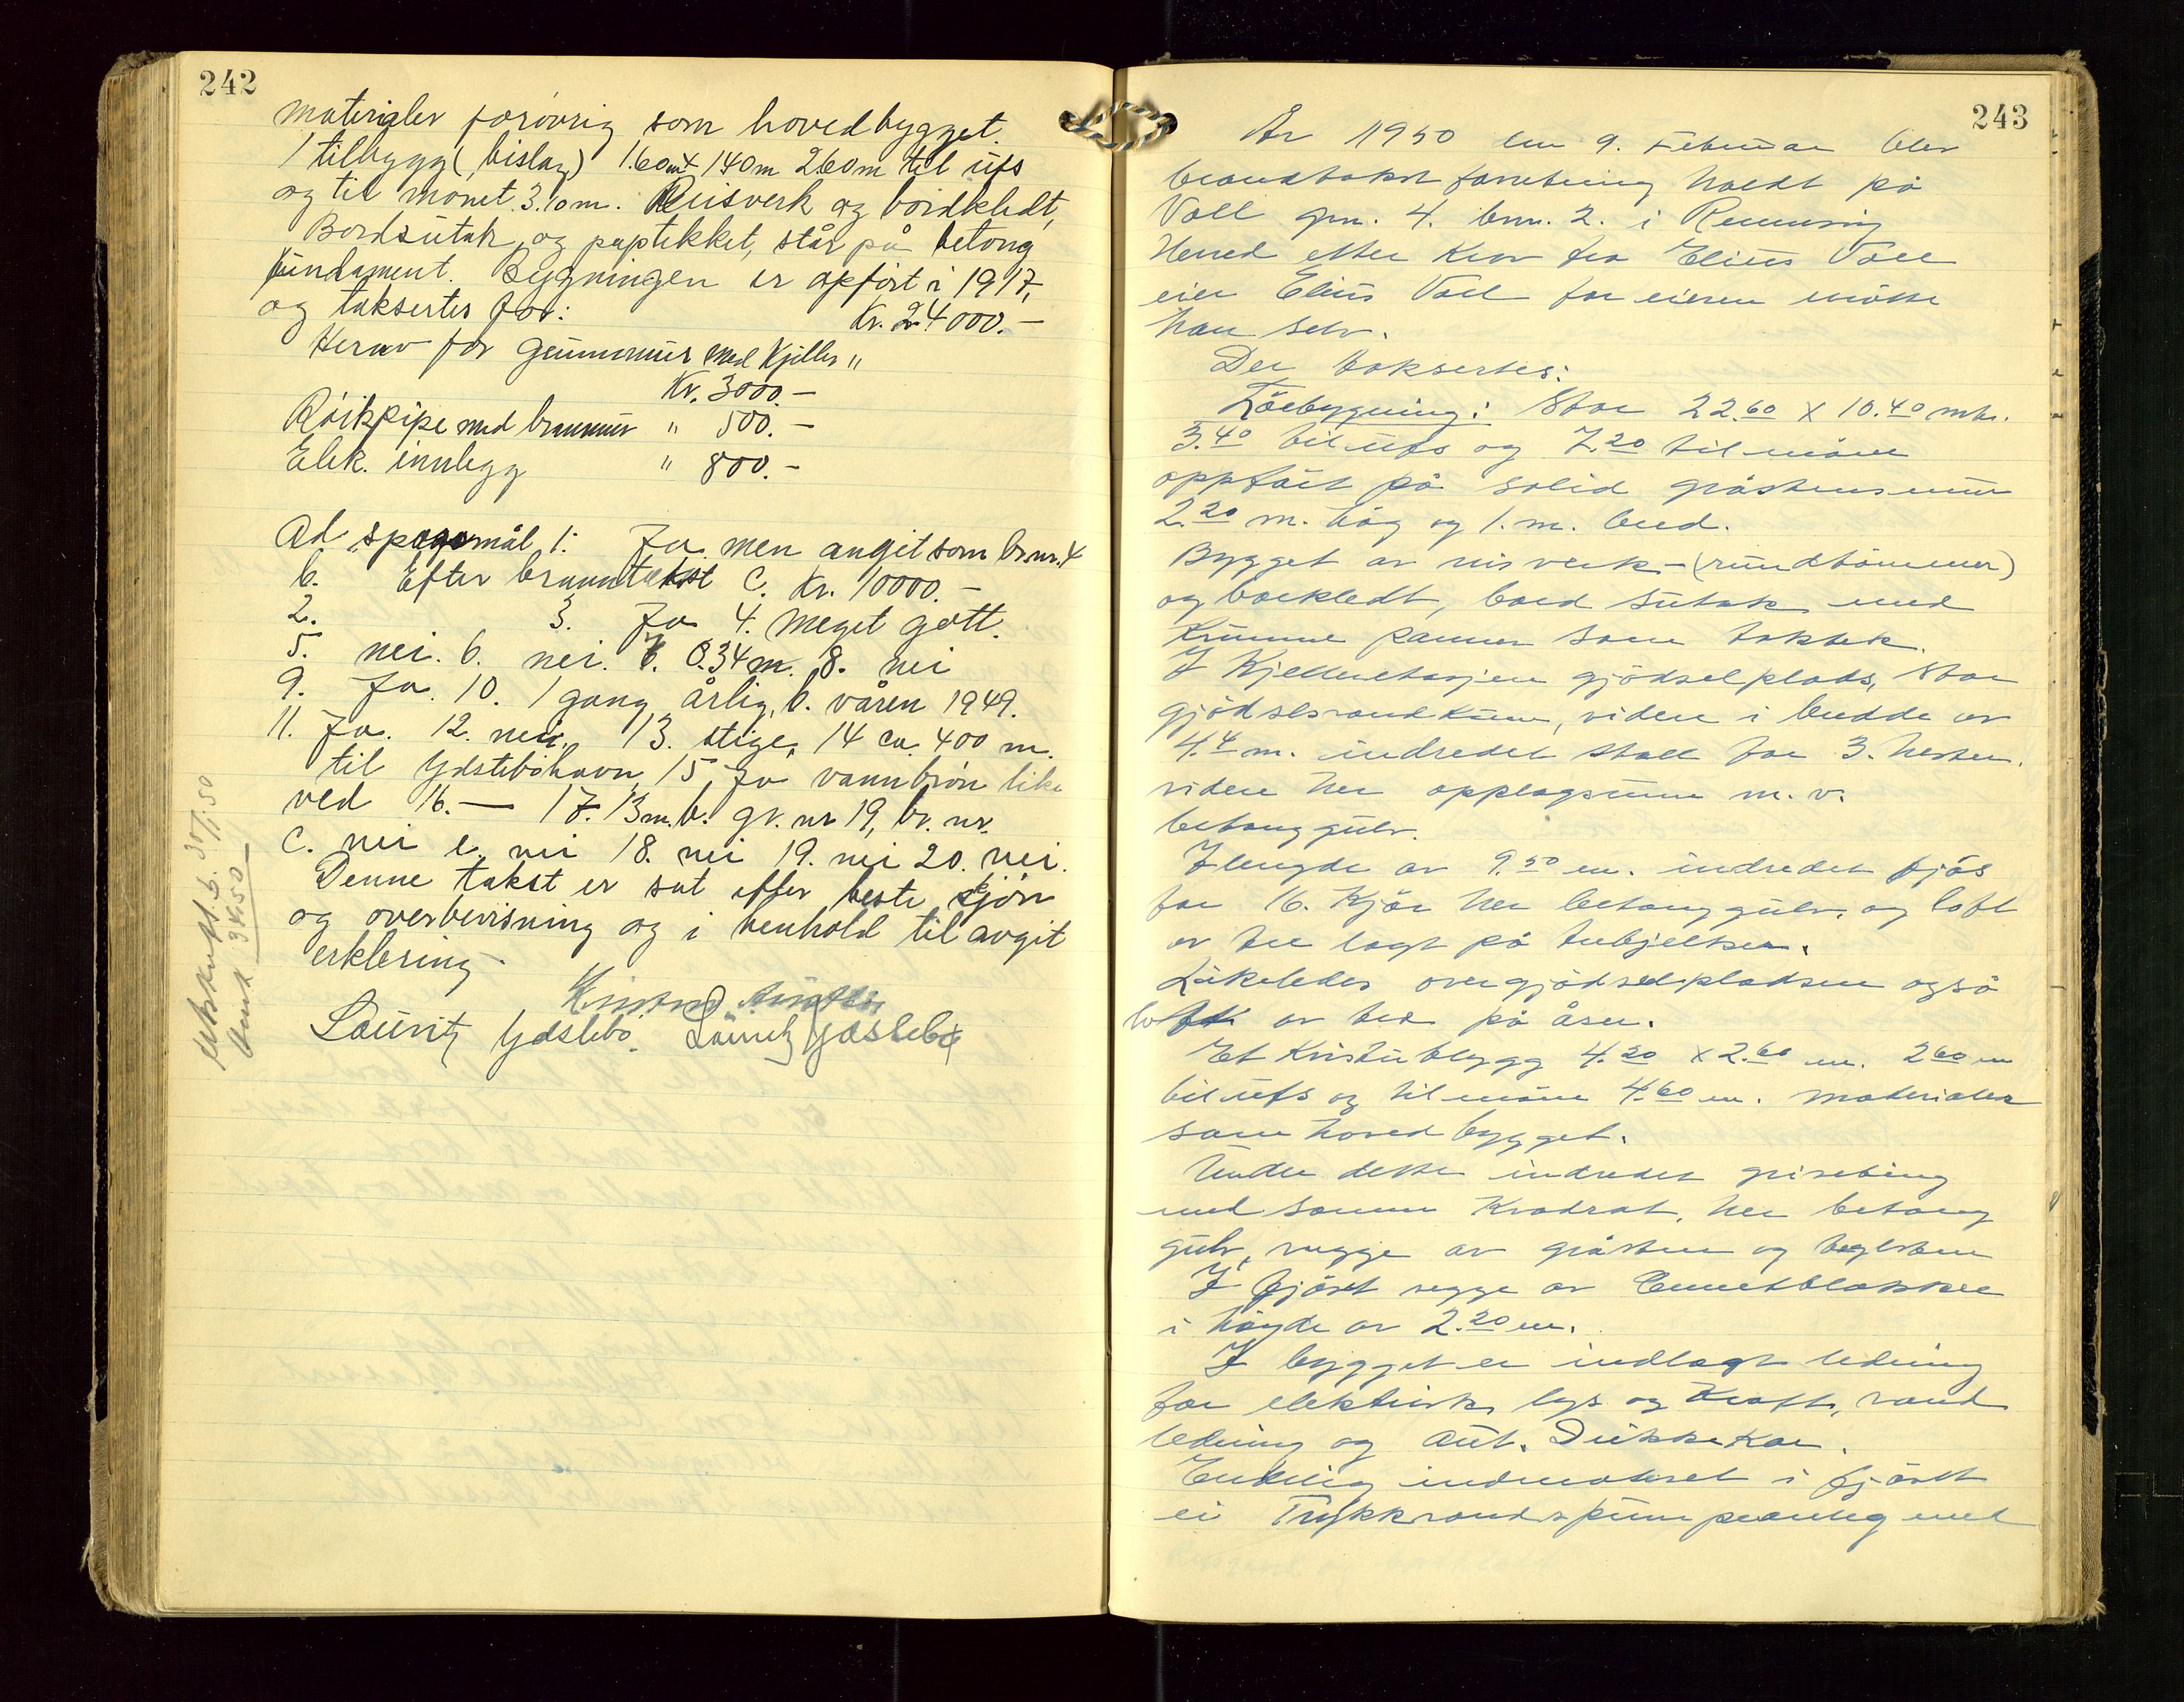 242
materialer forövrig som hovedbygget.
1 tilbygg (bislag) 1.60m x 1.40m 2.60m til ufs
og til mönet 3.10m. Reisverk og bordkledt,
Bordsutak og paptekket, står på betong
fundament. Bygningen er opfört i 1917,
og taksertes for: Kr. 24000.-
Herav for grunnmur med Kjeller "
Kr. 3000.-
Röikpipe med brannmur " 500.-
Elek. innlegg " 800.-
Ad spørsmål 1: Ja men angit som br.nr. 4
b. Efter branntakst c. Kr. 10000.-
2. 3. Ja 4. Meget gott.
5. nei. 6. nei. 7. 0.34m. 8. nei
9. Ja. 10. 1 gang årlig, b. våren 1949.
11. Ja. 12. nei. 13. stige, 14 ca. 400 m.
til Ydstebøhavn, 15 Ja vannbrön like
ved 16. — 17. 13m. b. gr. nr 19, br. nr.
C. nei e. nei 18. nei 19. nei 20. nei.
Denne takst er sat efter beste skjön
og overbevisning og i henhold til avgit
erklering.
Lauritz Ydstebø. Lauritz Ydstebø
31/1.50
34.50
243
År 1950 den 9. Februar blev
brandtakst forretning holdt på
Voll gnr. 4. bnr. 2. i Rennesøy
Herred etter krav fra Elius Voll
eier Elius Voll for eieren mötte
han selv.
Der taksertes:
Löebygning: Stor 22.60 x 10.40 mtr.
3.40 til ufs og 7.20 til möne
oppfört på solid gråstensmur
2.20 m. høg og 1. m. bred.
Bygget av reisverk - (rundtömmer)
og bordkledt, bord sutak med
Krumme panner som taktek.
I Kjelleretasjen gjödselplads, stor
gjödselvandkum, videre i bredde av
4.4 m. indredet stall for 3. hester.
videre her opplagsrum m. v.
betonggulv.
I lengde av 9.50 m. indredet fjös
for 16. Kjör her betonggulv, og loft
av tre lagt på trebjelker.
Likeledes over gjødselpladsen også
loft av tre på åser.
Et Kvisttilbygg 4.20 x 2.60 m. 2.60 m
til ufs og til möne 4.60 m. Materialer
som hovedbygget.
Under dette indredet grisebing
med samme Kvadrat, her betong
gulv, vegge av gråsten og teglsten
I fjöset vegge av Cementblokker
i høyde av 2.20 m.
I bygget er indlagt ledning
for elektrisk lys og Kraft, vand
ledning og aut. Drikkekar.
Endelig indmontert i fjöset
ei Trykkvandspumpeanleg med